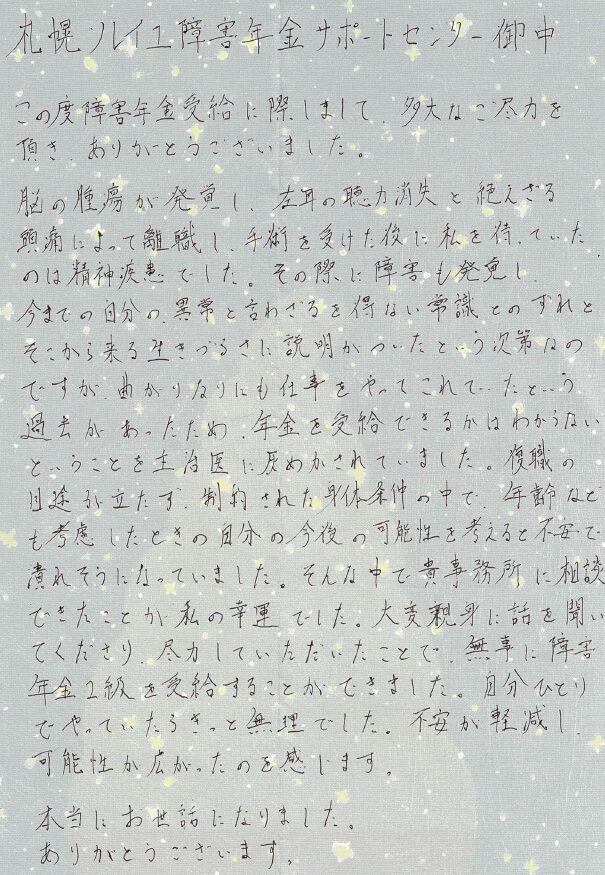 札幌ソレイユ障害年金サポートセンター御中
この度障害年金受給に際しまして、多大なご尽力を
頂き、ありがとうございました。
脳の腫瘍が発覚し、左耳の聴力消失と絶えざる
頭痛によって離職し、手術を受けた後に私を待っていた
のは精神疾患でした。その際に障害も発覚し、
今までの自分の異常と言わざるを得ない常識とのずれと
そこから来る生きづらさに説明がついたという次第なの
ですが、曲がりなりにも仕事をやってこれていたという
過去があったため、年金を受給できるかはわからない
ということを主治医に仄めかされていました。復職の
目途が立たず、制約された身体条件の中で、年齢など
も考慮したときの自分の今後の可能性を考えると不安で
潰れそうになっていました。そんな中で貴事務所に相談
できたことが私の幸運でした。大変親身に話を聞い
てくださり、尽力していただいたことで、無事に障害
年金2級を受給することができました。自分ひとり
でやっていたらきっと無理でした。不安が軽減し、
可能性が広がったのを感じます。
本当にお世話になりました。
ありがとうございます。